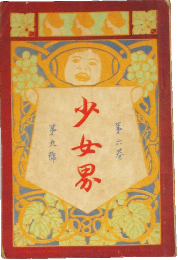 第六巻
少女界
第九號